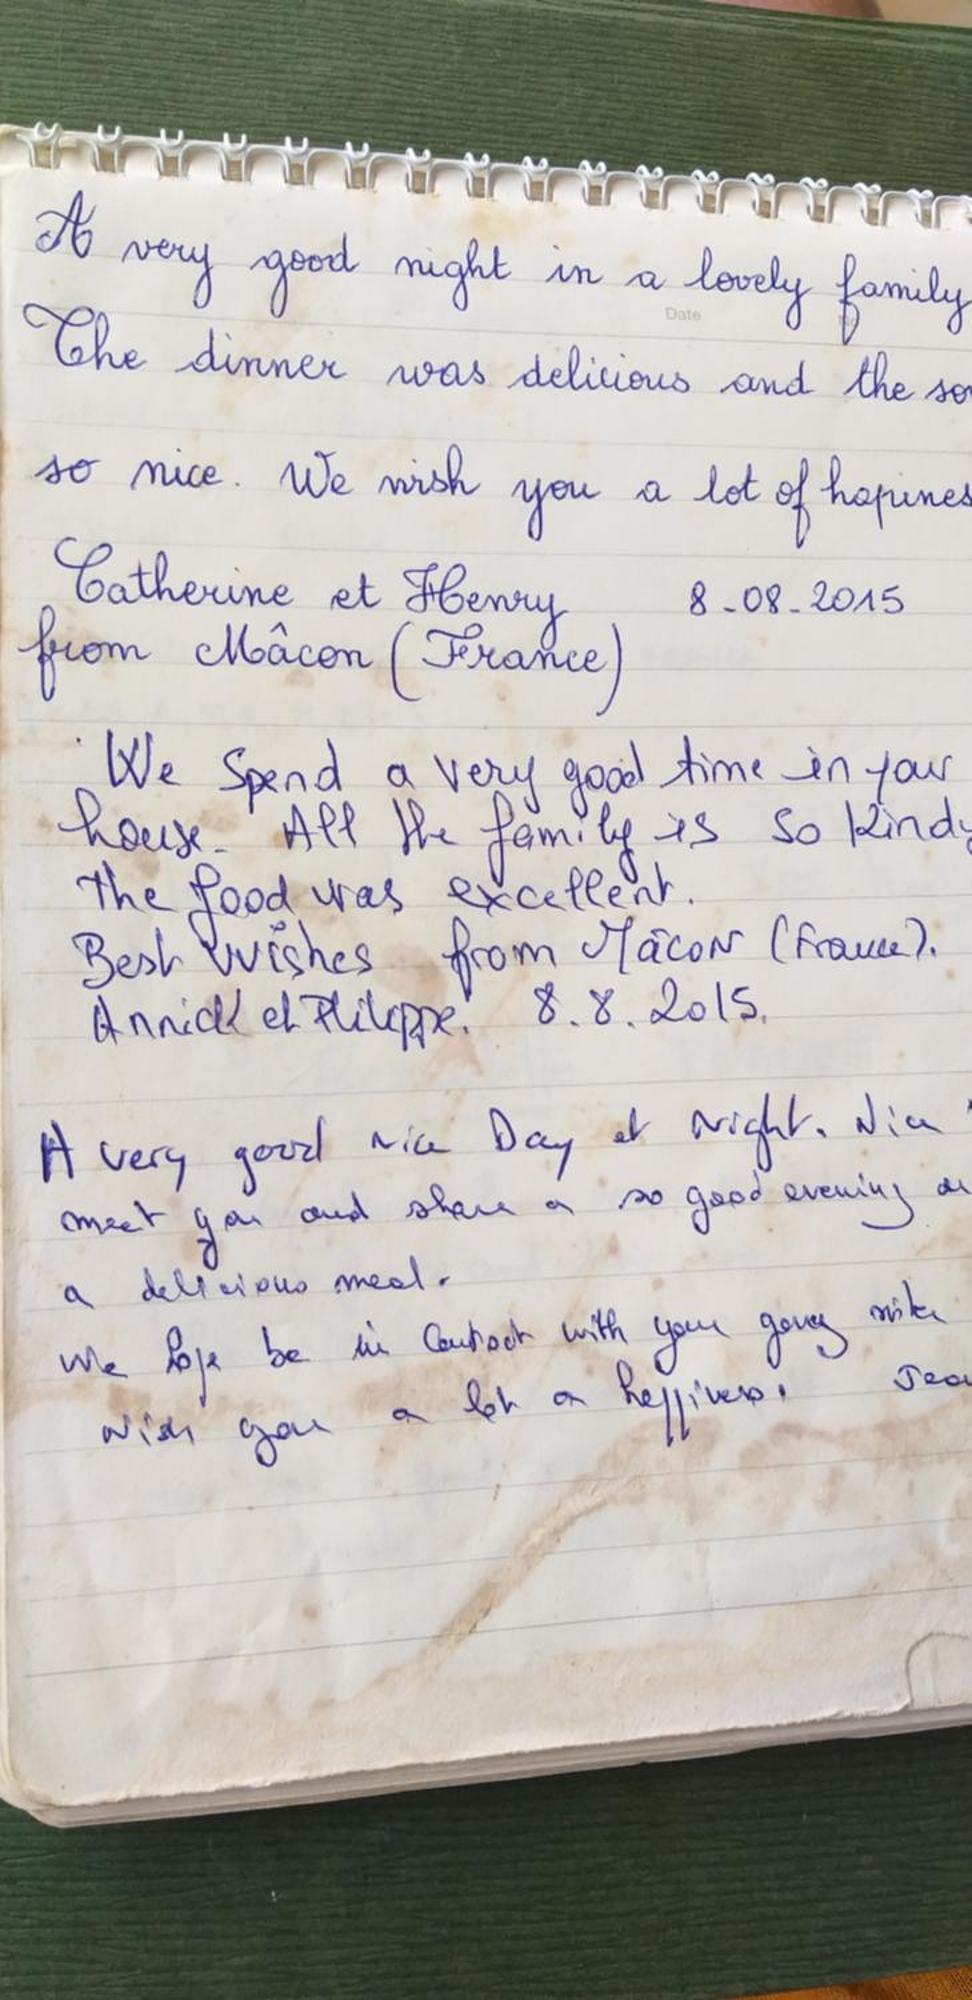 A very good night in a lovely family
Date
The dinner was delicious and the
so nice. We wish you a lot of hapines
Catherine et Henry 8-08-2015
from Mâcon (France)
We Spend a very good time in your
house. All the family is so kindy
the food was excellent.
Best Wishes from Mâcon (France).
Annick et Philippe. 8.8.2015.
A very good nice Day et Night. Nice
meet you and share a so good evening
a delicious meal.
We hope be in contact with your
wish you a lot a heppiness.